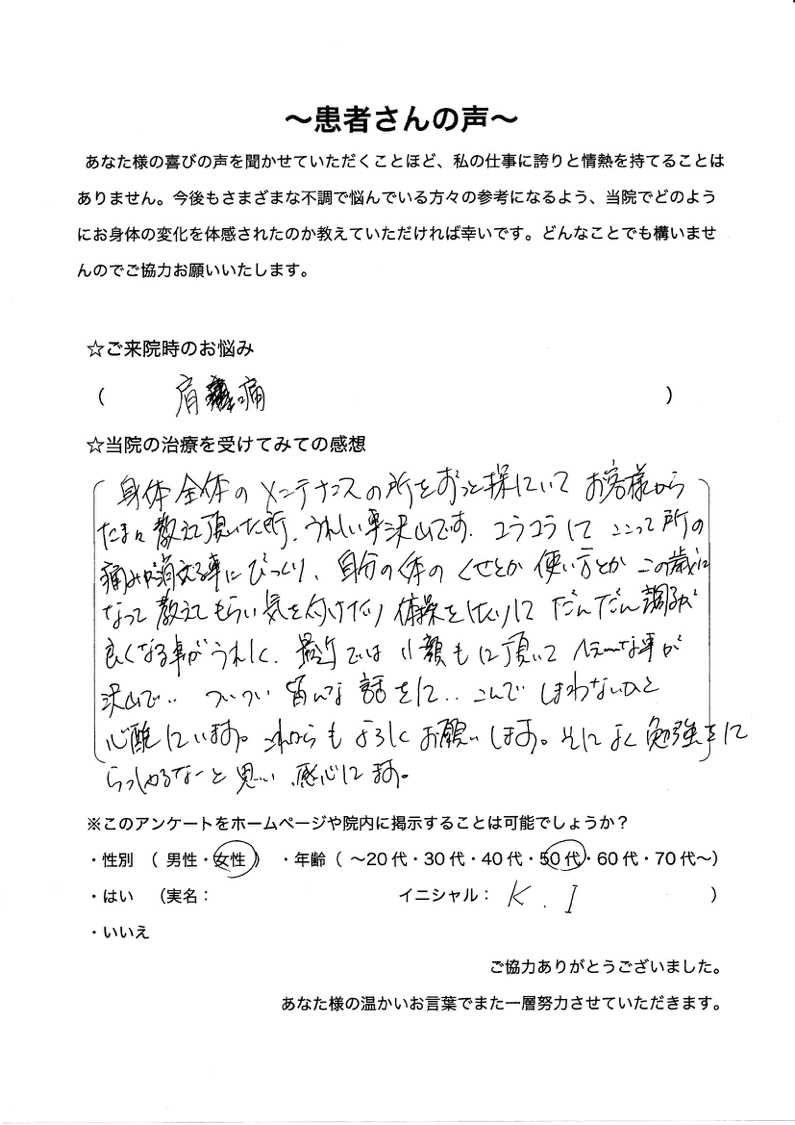 ～患者さんの声～
あなた様の喜びの声を聞かせていただくことほど、私の仕事に誇りと情熱を持てることは
ありません。今後もさまざまな不調で悩んでいる方々の参考になるよう、当院でどのよう
にお身体の変化を体感されたのか教えていただければ幸いです。どんなことでも構いませ
んのでご協力お願いいたします。
☆ご来院時のお悩み
（ 肩 痛 ）
☆当院の治療を受けてみての感想
身体全体のメンテナンスの所をずっと探していて お客様から
たまに教えて頂いた所、うれしい事沢山です。コリコリして ここって所の
痛みが消える事にびっくり、自分の体のくせとか使い方とか この歳に
なって教えてもらい気を付けたり 体操をしたりして だんだん調子が
良くなる事がうれしく、最近では小顔もして頂いて へぇーな事が
沢山で‥ ついつい 話をして‥ こんで しまわないひと
心酔しています。これからもよろしくお願いします。それによく勉強をして
らっしゃるなーと思い、感心します。
※このアンケートをホームページや院内に掲示することは可能でしょうか？
・性別 （ 男性・女性 ） ・年齢（ ～20代・30代・40代・50代・60代・70代～）
・はい （実名： イニシャル： K . I ）
・いいえ
ご協力ありがとうございました。
あなた様の温かいお言葉でまた一層努力させていただきます。